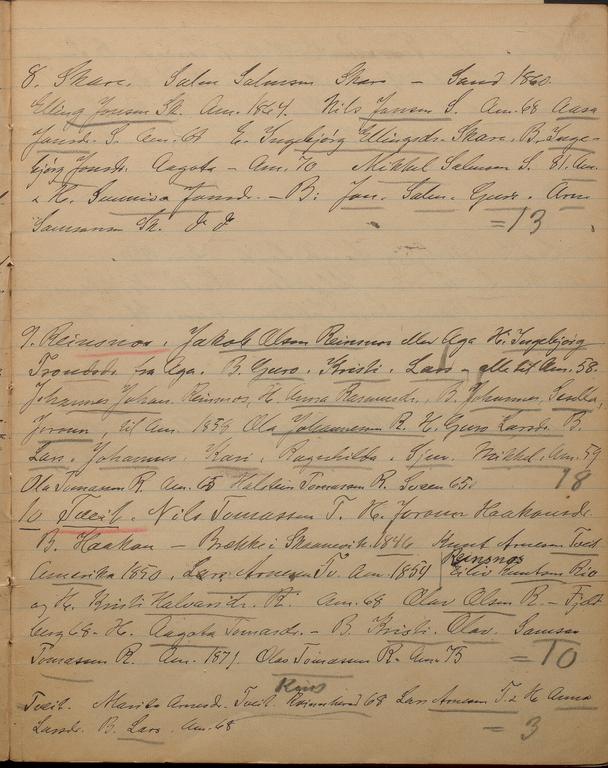 8. Skare. Salen Salmsen Skare — Sand 1860
Elling Jonsen Sk. Am. 1864. Nils Jonsen S. Am. 68 Aasa
Jonsd. S. Am. 69 E. Ingebjörg Ellingsd. Skare. B. Inge-
björg Jonsd. Aagota — Am. 70 Mikkel Salmsen S. 81. Am.
& H. Sunniva Jonsd. — B: Jon. Salm. Guro. Arne
Samsonsen Sk.
= 13
9. Reinsnos. Jakob Olsen Reinsnos eller Aga H. Ingebjörg
Trondsd. fra Aga. B. Guro. Kristi. Lars — alle til Am. 58.
Johannes Johan. Reinsnos, H. Anna Rasmusd. B. Johannes,
Jorunn til Am. 1859 Ola Johannesen R. H. Guro Larsd. B.
Lars. Johannes. Kari. Ragnhilda. Mikkel. Am. 59
Ola Tomassen R. Am. 65 Halstein Tomassen R. Sveen 65.
18
10 Tveit. Nils Tomassen T. H. Jorunn Haakonsd.
B. Haakon — Brekke i Skaanevik 1846 Knut Arnesen Tveit
Amerika 1850. Lars Arnesen Tv. Am. 1854
Reinsnos
Eiliv Knutsen
og H. Kristi Halvarsd. R. Am. 68 Olav Olsen R — Fjeld
berg 68 — H. Aagota Tomasd. — B. Kristi. Olav. Samson
Tomassen R. Am. 1871. Olav Tomassen R. Am. 75
= 10
Tveit. Marita Arnesd. Tveit. Kvinnherad 68 Lars Arnesen T. & H. Anna
Larsd. B. Lars. Am. 68
= 3